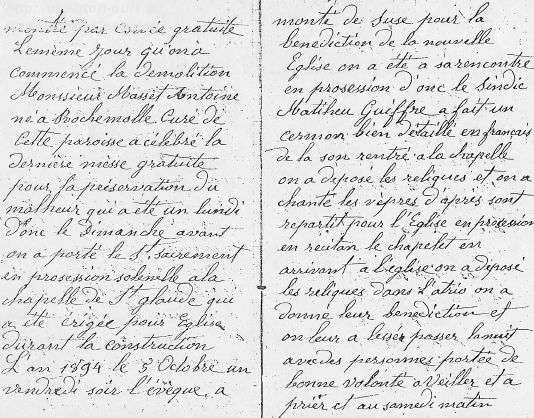 monité par corvée gratuite
Lemême jour qu'on a
commencé la demolition
Monssieur Massèt Antoine
ne a Rochemolle Curé de
Cette paroisse a célébré la
dernière messe gratuite
pour la préservation du
malheur qui a été un lundi
d'onc le Dimanche avant
on a porté le St. sacrement
en prosession solenèlle a la
chapelle de St glaude qui
a été érigée pour Eglise
durant la construction
L'an 1894 le 5 Octobre un
vendredi soir l'évêque, a
monté de Suse pour la
benediction de la nouvelle
Eglise on a été à sa rencontre
en prosession d'onc le Sindic
Matiheu Guiffre a fait un
cermon bien détaillé en français
de la son rentré a la chapelle
on a deposé les reliques et on a
chanté les vêpres d'après sont
repartit pour l'Eglise en procession
en recitan le chapelet en
arrivant à l'eglise on a déposé
les reliques dans l'atrio on a
donne leur benediction et
on leur a lessér passer la nuit
avec des personnes portée de
bonne volonte a Veiller et a
prièr et au samedi matin